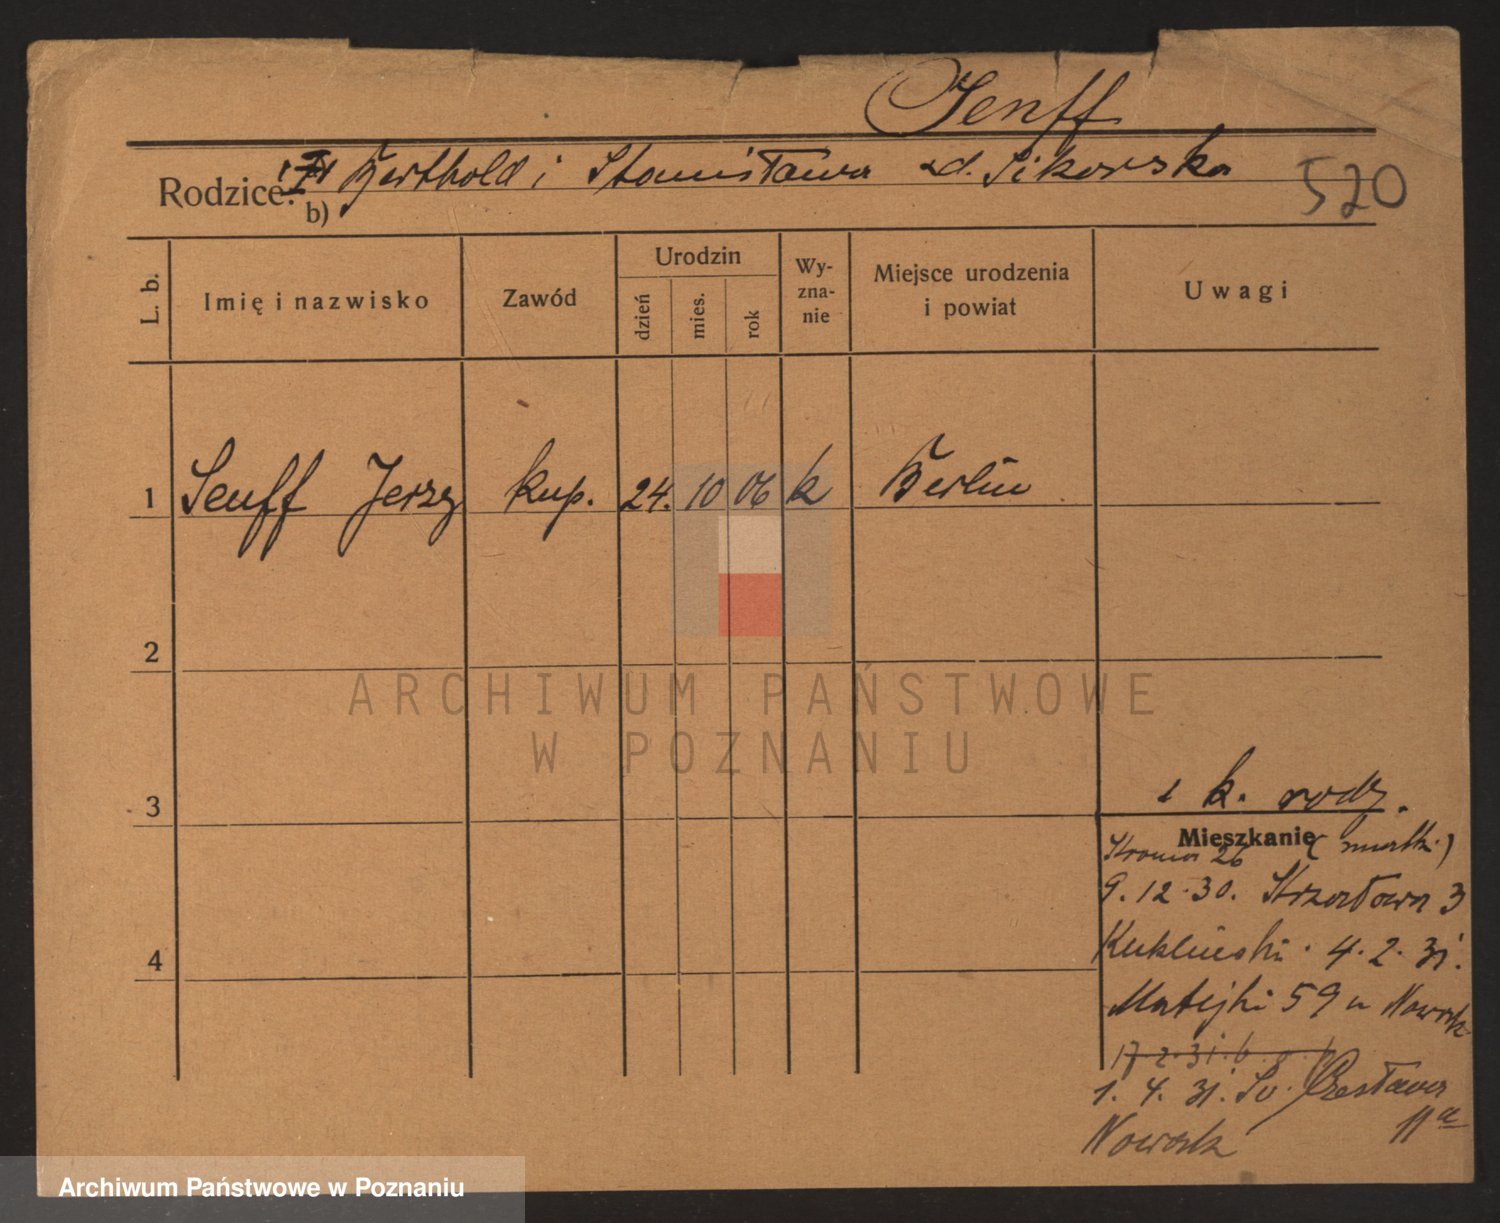 Senff
Rodzice: Berthold i Stanisława zd. Sikorska
b)
520
L. b.
Imię i nazwisko
Zawód
Urodzin
dzień
mies.
rok
Wy-
zna-
nie
Miejsce urodzenia
i powiat
Uwagi
1 Senff Jerzy kup. 24. 10 06 k Berlin
2
3
4
1 k. rodz.
Mieszkanie
26 (matk.)
9.12.30. Strzałowa 3
4.2.31.
Matejki 59 u Nowak
17.2.31.
1.4.31. Św. Czesława
11a
Nowak
ARCHIWUM PAŃSTWOWE
W POZNANIU
Archiwum Państwowe w Poznaniu